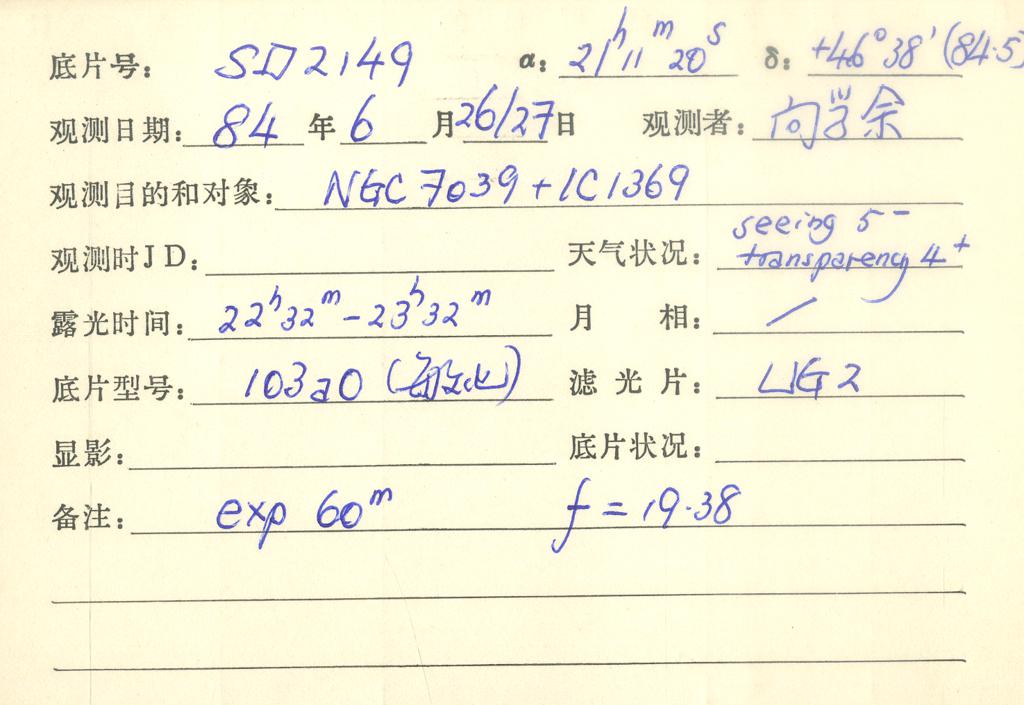 底片号: SD2149 α: 21ʰ11ᵐ20ˢ δ: +46°38′(84.5)
观测日期: 84年6月26/27日 观测者: 向学余
观测目的和对象: NGC 7039 + IC1369
观测时JD: 天气状况: seeing 5⁻ transparency 4⁺
露光时间: 22ʰ32ᵐ-23ʰ32ᵐ 月相: /
底片型号: 103aO (敏化) 滤光片: UG2
显影: 底片状况:
备注: exp 60ᵐ f = 19.38